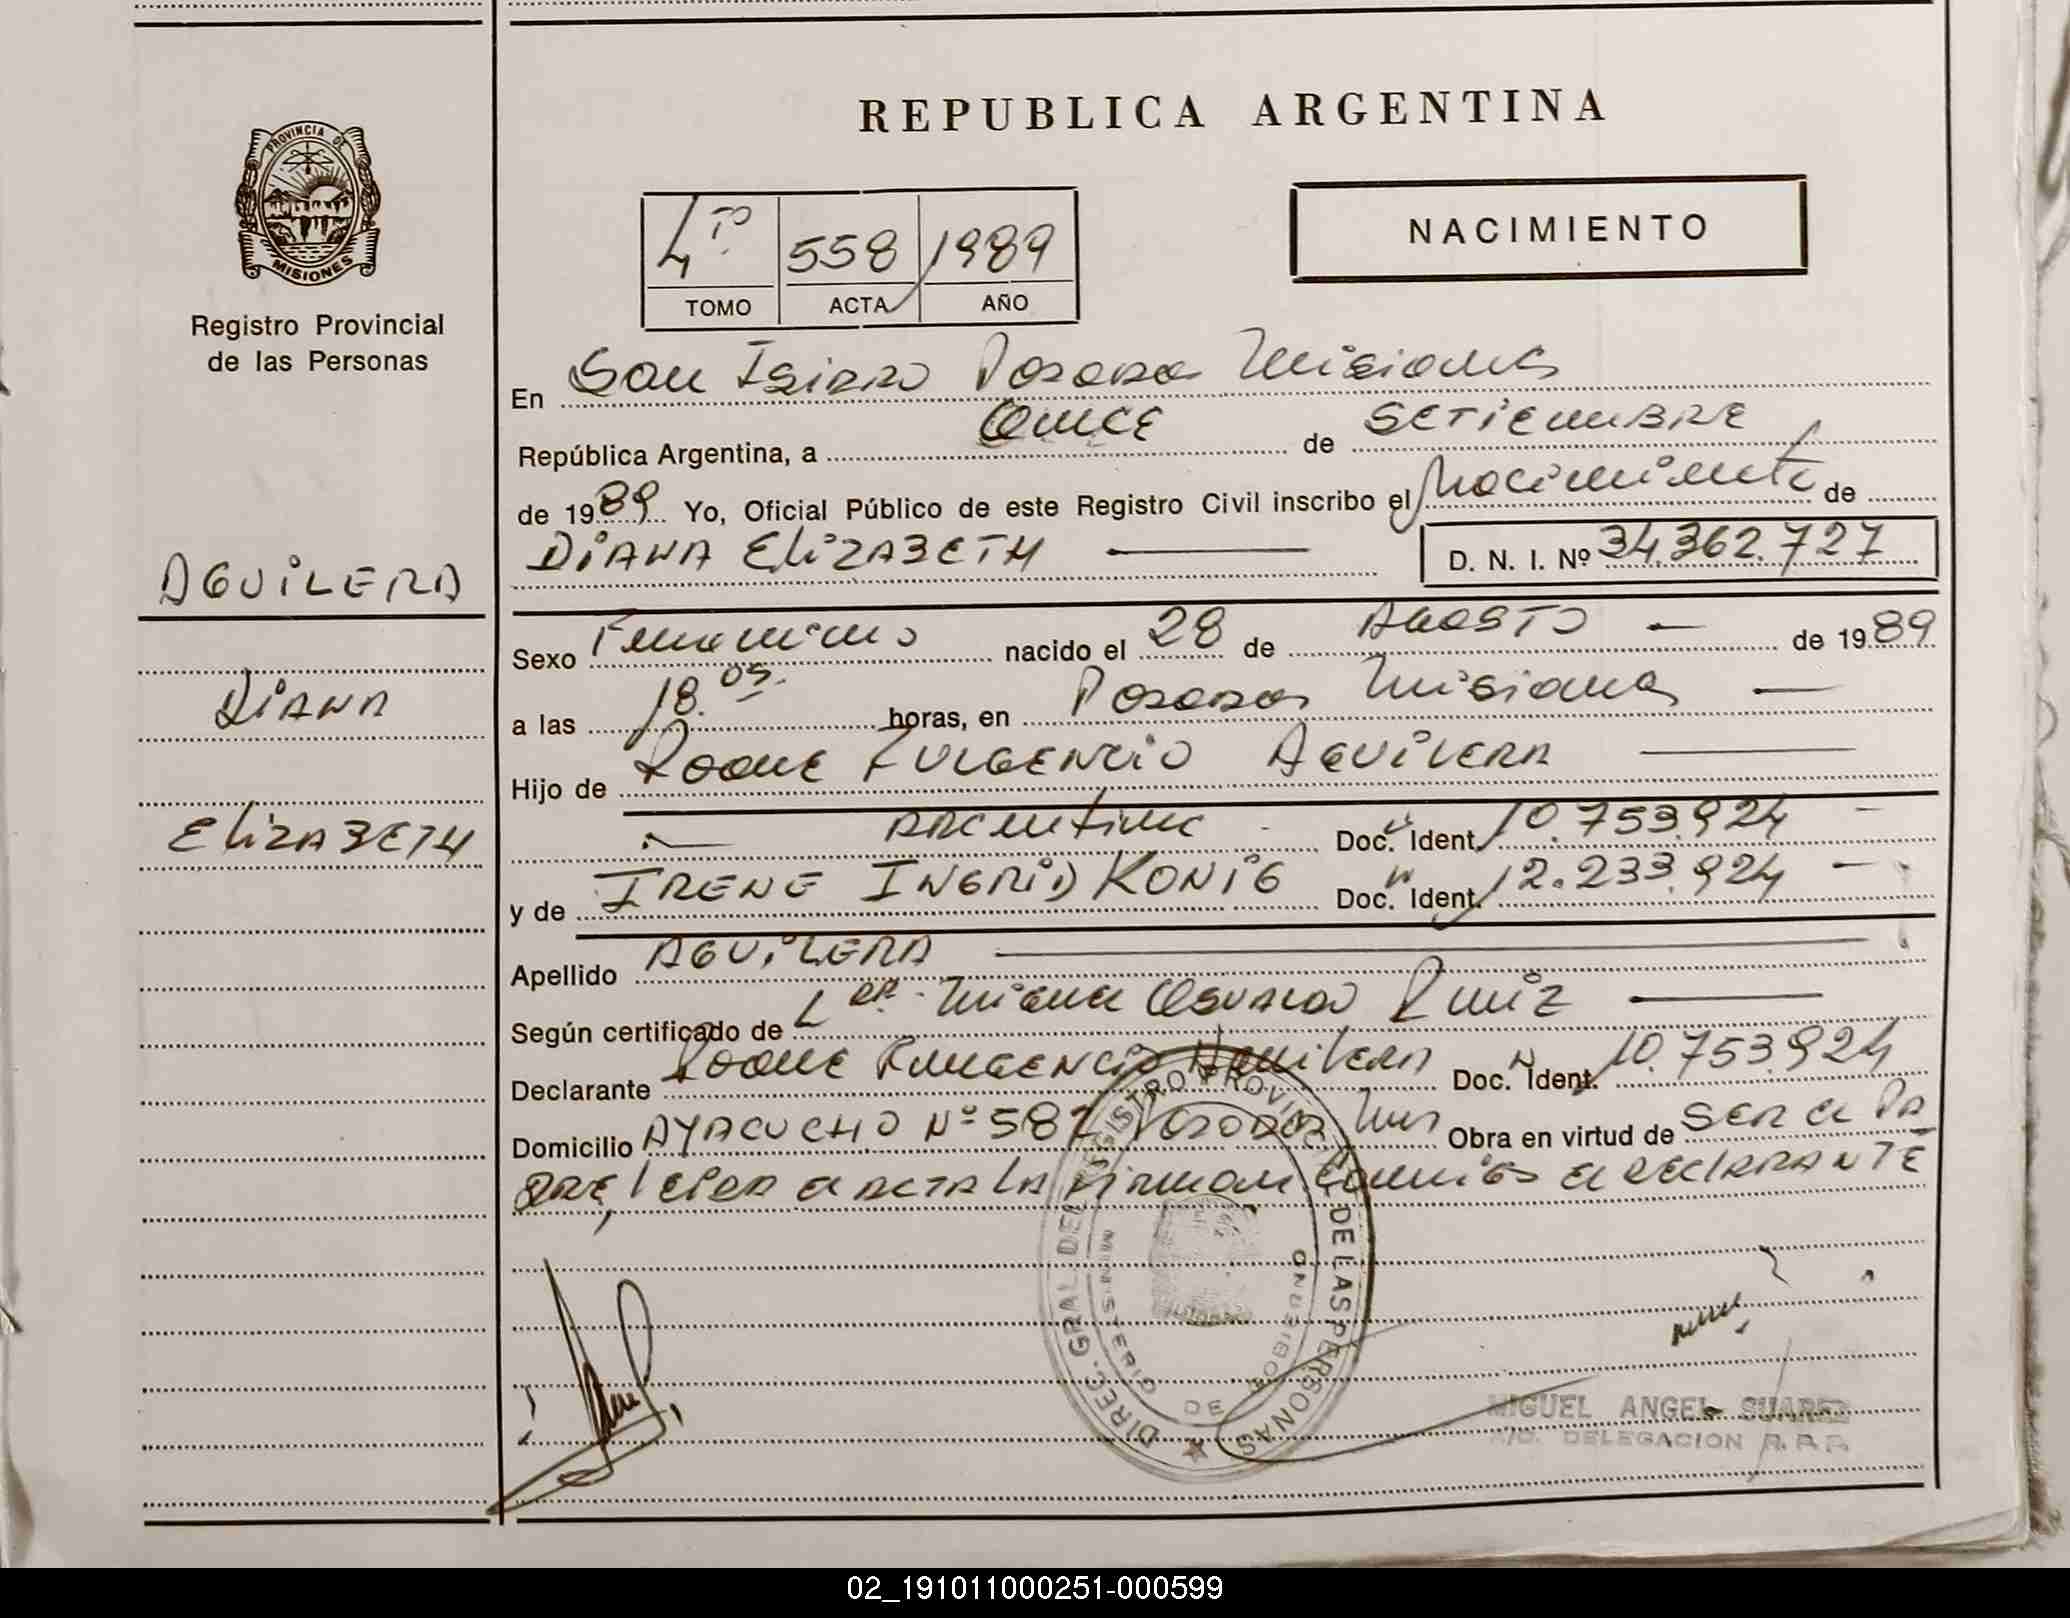 REPUBLICA ARGENTINA
PROVINCIA DE
MISIONES
Registro Provincial
de las Personas
4to. 558 1989
TOMO ACTA AÑO
NACIMIENTO
En San Isidro Posadas Misiones
República Argentina, a Quince de SETIEMBRE
de 1989 Yo, Oficial Público de este Registro Civil inscribo el Nacimiento de
DIANA ELIZABETH D. N. I. Nº 34.362.727
AGUILERA
DIANA
ELIZABETH
Sexo Femenino nacido el 28 de AGOSTO de 1989
a las 18.05. horas, en Posadas Misiones
Hijo de ROQUE FULGENCIO AGUILERA
ARGENTINO Doc. Ident. 10.753.924
y de IRENE INGRID KONIG Doc. Ident. 12.233.924
Apellido AGUILERA
Según certificado de Miguel Osvaldo Ruiz
Declarante ROQUE FULGENCIO Aguilera Doc. Ident. 10.753.924
Domicilio AYACUCHO Nº 582 Posadas Mnes Obra en virtud de SER el PA
DRE, leida el ACTA LA firman conmigo el DECLARANTE
DIREC. GRAL. DEL REGISTRO PROVINCIAL DE LAS PERSONAS
MINISTERIO DE GOBIERNO
MIGUEL ANGEL SUAREZ
A/C. DELEGACION R.P.P.
02_191011000251-000599